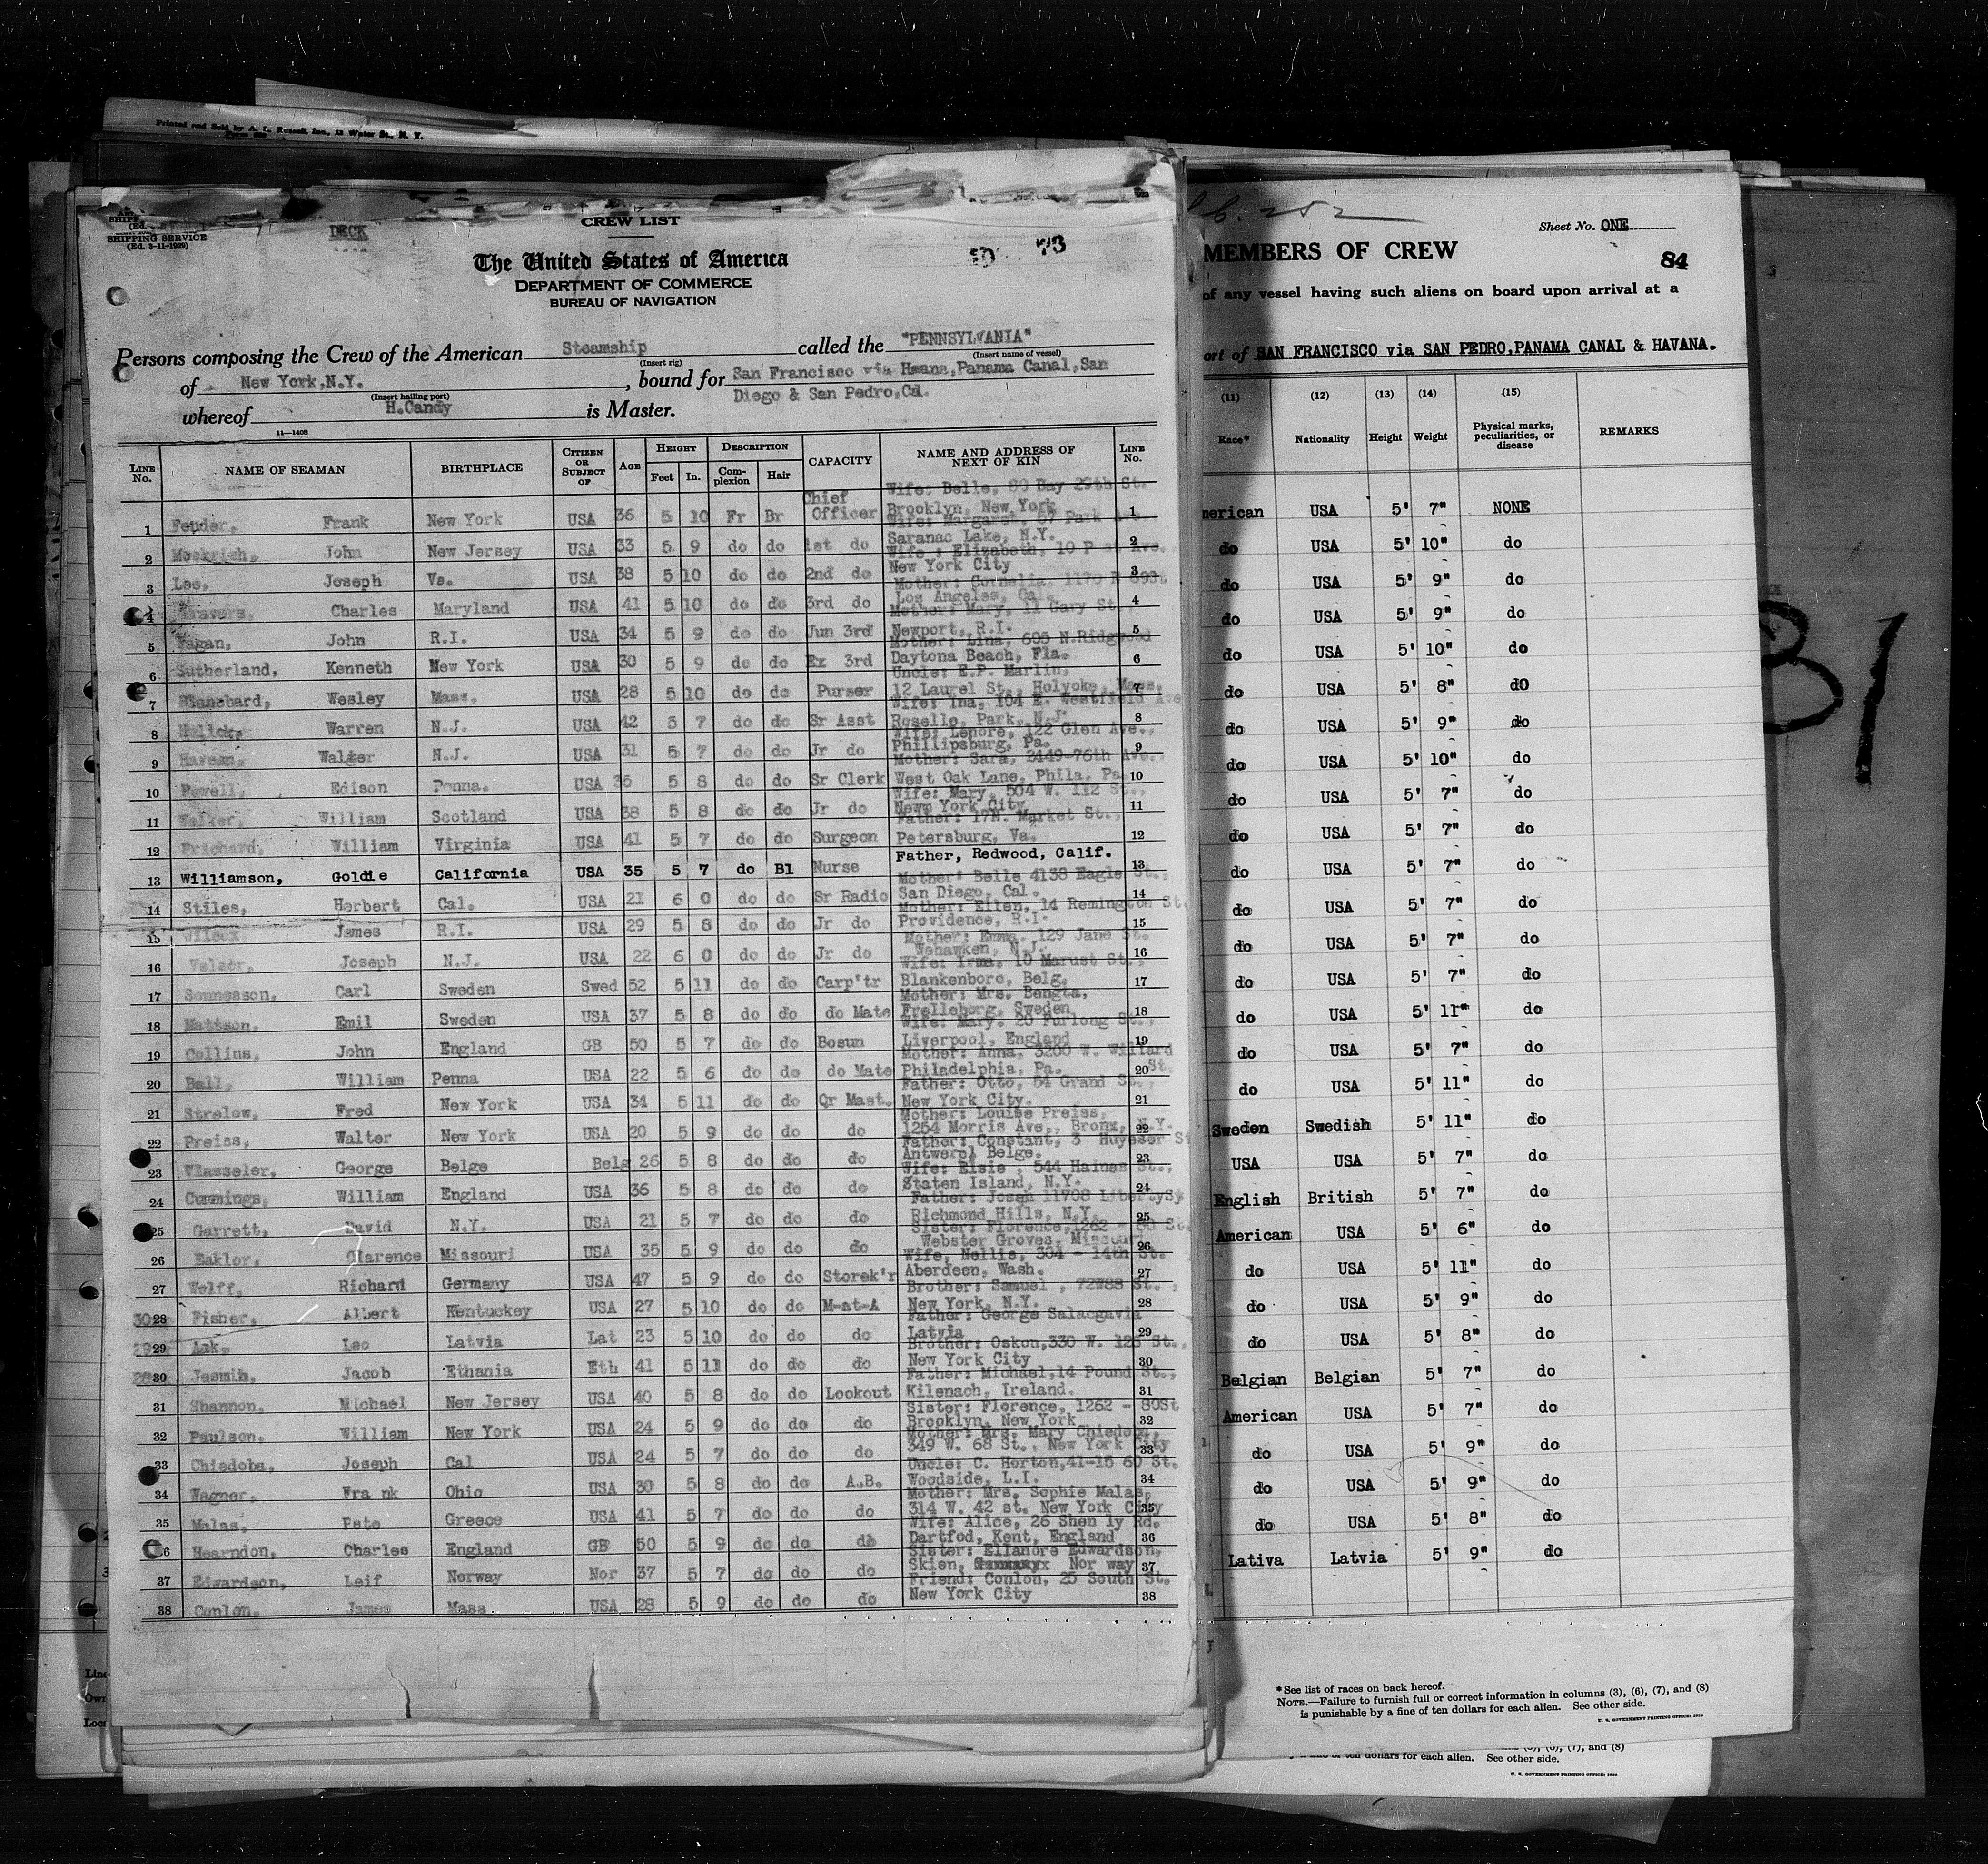 Printed and Sold by A. L. Russell, Inc., 12 Water St., N. Y.
SHIPPING SERVICE
(Ed. 3-11-1929)
DECK
CREW LIST
The United States of America
DEPARTMENT OF COMMERCE
BUREAU OF NAVIGATION
73
Persons composing the Crew of the American Steamship called the "PENNSYLVANIA"
(Insert rig) (Insert name of vessel)
of New York,N.Y. , bound for San Francisco via Hwana,Panama Canal,San
(Insert hailing port) Diego & San Pedro,Ca.
whereof H.Candy is Master.
11—1408
LINE No. NAME OF SEAMAN BIRTHPLACE CITIZEN OR SUBJECT OF AGE HEIGHT Feet In. DESCRIPTION Complexion Hair CAPACITY NAME AND ADDRESS OF NEXT OF KIN LINE No.
Wife: Belle, 89 Bay 29th St.
1 Frank New York USA 36 5 10 Fr Br Chief Officer Brooklyn, New York 1
Wife: Margaret, 67 Park Ave.
2 John New Jersey USA 33 5 9 do do 1st do Saranac Lake, N.Y. 2
Wife : Elizabeth, 10 Ave.
3 Lee, Joseph Va. USA 38 5 10 do do 2nd do New York City 3
Mother: Cornelia, 1170
4 Travers, Charles Maryland USA 41 5 10 do do 3rd do Los Angeles, Cal. 4
Mother: Mary, 11 Gary St.
5 Fagan, John R.I. USA 34 5 9 do do Jun 3rd Newport, R.I. 5
Mother: Lina, 605 N.Ridgwood
6 Sutherland, Kenneth New York USA 30 5 9 do do Ex 3rd Daytona Beach, Fla. 6
Uncle: E.P. Marlin,
7 Blanchard, Wesley Mass. USA 28 5 10 do do Purser 12 Laurel St., Holyoke, Mass. 7
Wife: Ina, 104 E. Westfield Ave
8 Warren N.J. USA 42 5 7 do do Sr Asst Roselle, Park, N.J. 8
Wife: Lenore, 122 Glen Ave.,
9 Walter N.J. USA 31 5 7 do do Jr do Phillipsburg, Pa. 9
Mother: Sara, 2449-76th Ave.,
10 Powell, Edison Penna. USA 35 5 8 do do Sr Clerk West Oak Lane, Phila. Pa 10
Wife: Mary, 504 W. 112 St.,
11 Walker, William Scotland USA 38 5 8 do do Jr do Neww York City 11
Father: 17N. Market St.,
12 Prichard, William Virginia USA 41 5 7 do do Surgeon Petersburg, Va. 12
Father, Redwood, Calif.
13 Williamson, Goldie California USA 35 5 7 do Bl Nurse 13
Mother: Belle 4138 Eagle St.,
14 Stiles, Herbert Cal. USA 21 6 0 do do Sr Radio San Diego, Cal. 14
Mother: Ellen, 14 Remington St.
15 Wilcox, James R.I. USA 29 5 8 do do Jr do Providence, R.I. 15
Mother: Emma, 129 Jane St.
16 Joseph N.J. USA 22 6 0 do do Jr do Wehawken, N.J. 16
Wife: Irma, 10 Marust St.,
17 Sonnesson, Carl Sweden Swed 52 5 11 do do Carp'tr Blankenboro, Belg. 17
Mother: Mrs. Bengta,
18 Mattson, Emil Sweden USA 37 5 8 do do do Mate Frelleborg, Sweden 18
Wife: Mary. 20 Furlong St.,
19 Collins, John England GB 50 5 7 do do Bosun Liverpool, England 19
Mother: Anna, 3200 W. Willard St.
20 Ball, William Penna USA 22 5 6 do do do Mate Philadelphia, Pa. 20
Father: Otto, 54 Grand St.,
21 Strelow, Fred New York USA 34 5 11 do do Qr Mast. New York City. 21
Mother: Louise Preiss,
22 Preiss, Walter New York USA 20 5 9 do do do 1254 Morris Ave., Bronx, N.Y. 22
Father: Constant, 3 Huyesser St
23 Vlasseler, George Belge Belg 26 5 8 do do do Antwerpl Belge. 23
Wife: Elsie , 544 Haines St.,
24 Cummings, William England USA 36 5 8 do do do Staten Island, N.Y. 24
Father: Joseh 11708 LibertySt
25 Garrett, David N.Y. USA 21 5 7 do do do Richmond Hills, N.Y. 25
Sister: Florence,1262 - 80 St.
26 Eaklor, Clarence Missouri USA 35 5 9 do do do Webster Groves, Missouri 26
Wife, Nellie, 304 - 14th St.
27 Wolff, Richard Germany USA 47 5 9 do do Storek'r Aberdeen, Wash. 27
Brother: Samuel , 72W88 St.,
30 28 Fisher, Albert Kentuckey USA 27 5 10 do do M-at-A New York, N.Y. 28
Father: George Salacgavia
29 29 Aak, Leo Latvia Lat 23 5 10 do do do Latvia 29
Brother: Oskon,330 W. 126 St.,
28 30 Jesmin, Jacob Ethania Eth 41 5 11 do do do New York City 30
Father: Michael,14 Pound St.,
31 Shannon, Michael New Jersey USA 40 5 8 do do Lookout Kilenach, Ireland. 31
Sister: Florence, 1262 - 80St
32 Paulson, William New York USA 24 5 9 do do do Brooklyn, New York 32
Mother: Mrs. Mary Chiedoba,
33 Chiedoba, Joseph Cal USA 24 5 7 do do do 349 W. 68 St., New York City 33
Uncle: C. Horton,41-15 60 St.
34 Wagner, Fra nk Ohio USA 30 5 8 do do A.B. Woodside, L.I. 34
Mother: Mrs. Sophie Malas,
35 Malas, Pete Greece USA 41 5 7 do do do 314 W. 42 st. New York City 35
Wife: Alice, 26 Shen ly Rd.
36 Hearndon, Charles England GB 50 5 9 do do do Dartfod, Kent, England 36
Sister: Ellanore Edwardson,
37 Edwardson, Leif Norway Nor 37 5 7 do do do Skien, Nor way 37
Friend: Conlon, 25 South St.
38 Conlon, James Mass USA 28 5 9 do do do New York City 38
Sheet No. ONE
MEMBERS OF CREW
84
of any vessel having such aliens on board upon arrival at a
ort of SAN FRANCISCO via SAN PEDRO,PANAMA CANAL & HAVANA.
(11) (12) (13) (14) (15)
Race* Nationality Height Weight Physical marks, peculiarities, or disease REMARKS
merican USA 5' 7" NONE
do USA 5' 10" do
do USA 5' 9" do
do USA 5' 9" do
do USA 5' 10" do
do USA 5' 8" dO
do USA 5' 9" do
do USA 5' 10" do
do USA 5' 7" do
do USA 5' 7" do
do USA 5' 7" do
do USA 5' 7" do
do USA 5' 7" do
do USA 5' 7" do
do USA 5' 11" do
do USA 5' 7" do
do USA 5' 11" do
Sweden Swedish 5' 11" do
USA USA 5' 7" do
English British 5' 7" do
American USA 5' 6" do
do USA 5' 11" do
do USA 5' 9" do
do USA 5' 8" do
Belgian Belgian 5' 7" do
American USA 5' 7" do
do USA 5' 9" do
do USA 5' 9" do
do USA 5' 8" do
Lativa Latvia 5' 9" do
*See list of races on back hereof.
NOTE.—Failure to furnish full or correct information in columns (3), (6), (7), and (8)
is punishable by a fine of ten dollars for each alien. See other side.
U. S. GOVERNMENT PRINTING OFFICE
(6), (7), and (8)
ten dollars for each alien. See other side.
U. S. GOVERNMENT PRINTING OFFICE